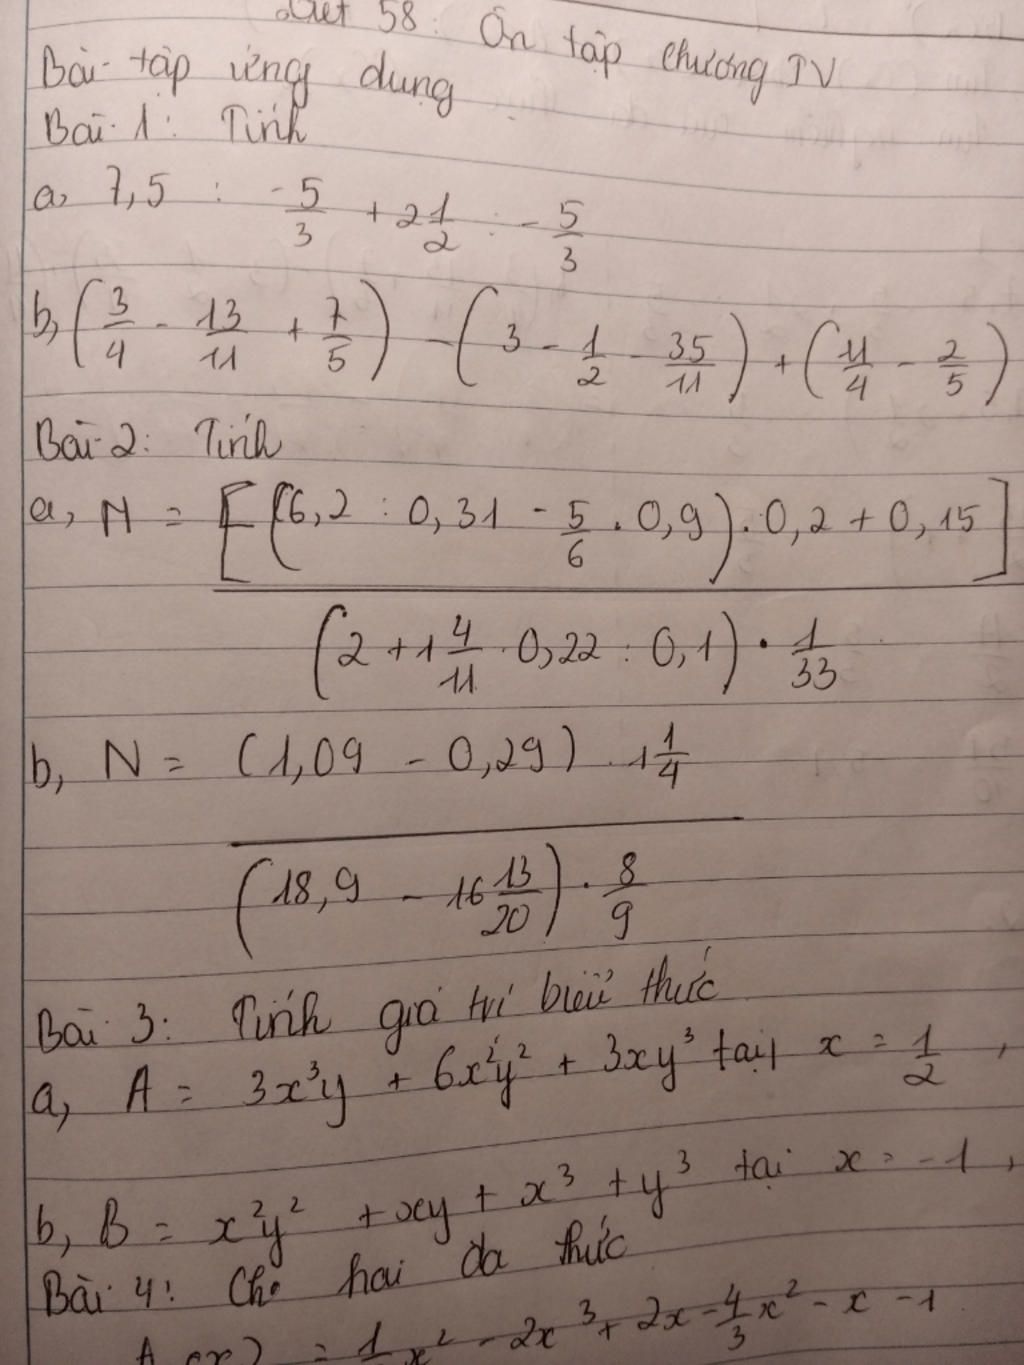 Tiết 58: Ôn tập chương IV
Bài tập ứng dụng
Bài 1: Tính
a, 7,5 : -5/3 + 2 1/2 : -5/3
b, (3/4 - 13/11 + 7/5) - (3 - 1/2 - 35/11) + (11/4 - 2/5)
Bài 2: Tính
a, N = [(6,2 : 0,31 - 5/6 . 0,9) . 0,2 + 0,15]
(2 + 1 4/11 . 0,22 : 0,1) . 1/33
b, N = (1,09 - 0,29) . 1 1/4
(18,9 - 16 13/20) . 8/9
Bài 3: Tính giá trị biểu thức
a, A = 3x³y + 6x²y² + 3xy³ tại x = 1/2,
b, B = x²y² + xy + x³ + y³ tại x = -1,
Bài 4: Cho hai đa thức
x² - 2x³ + 2x - 4/3x² - x - 1